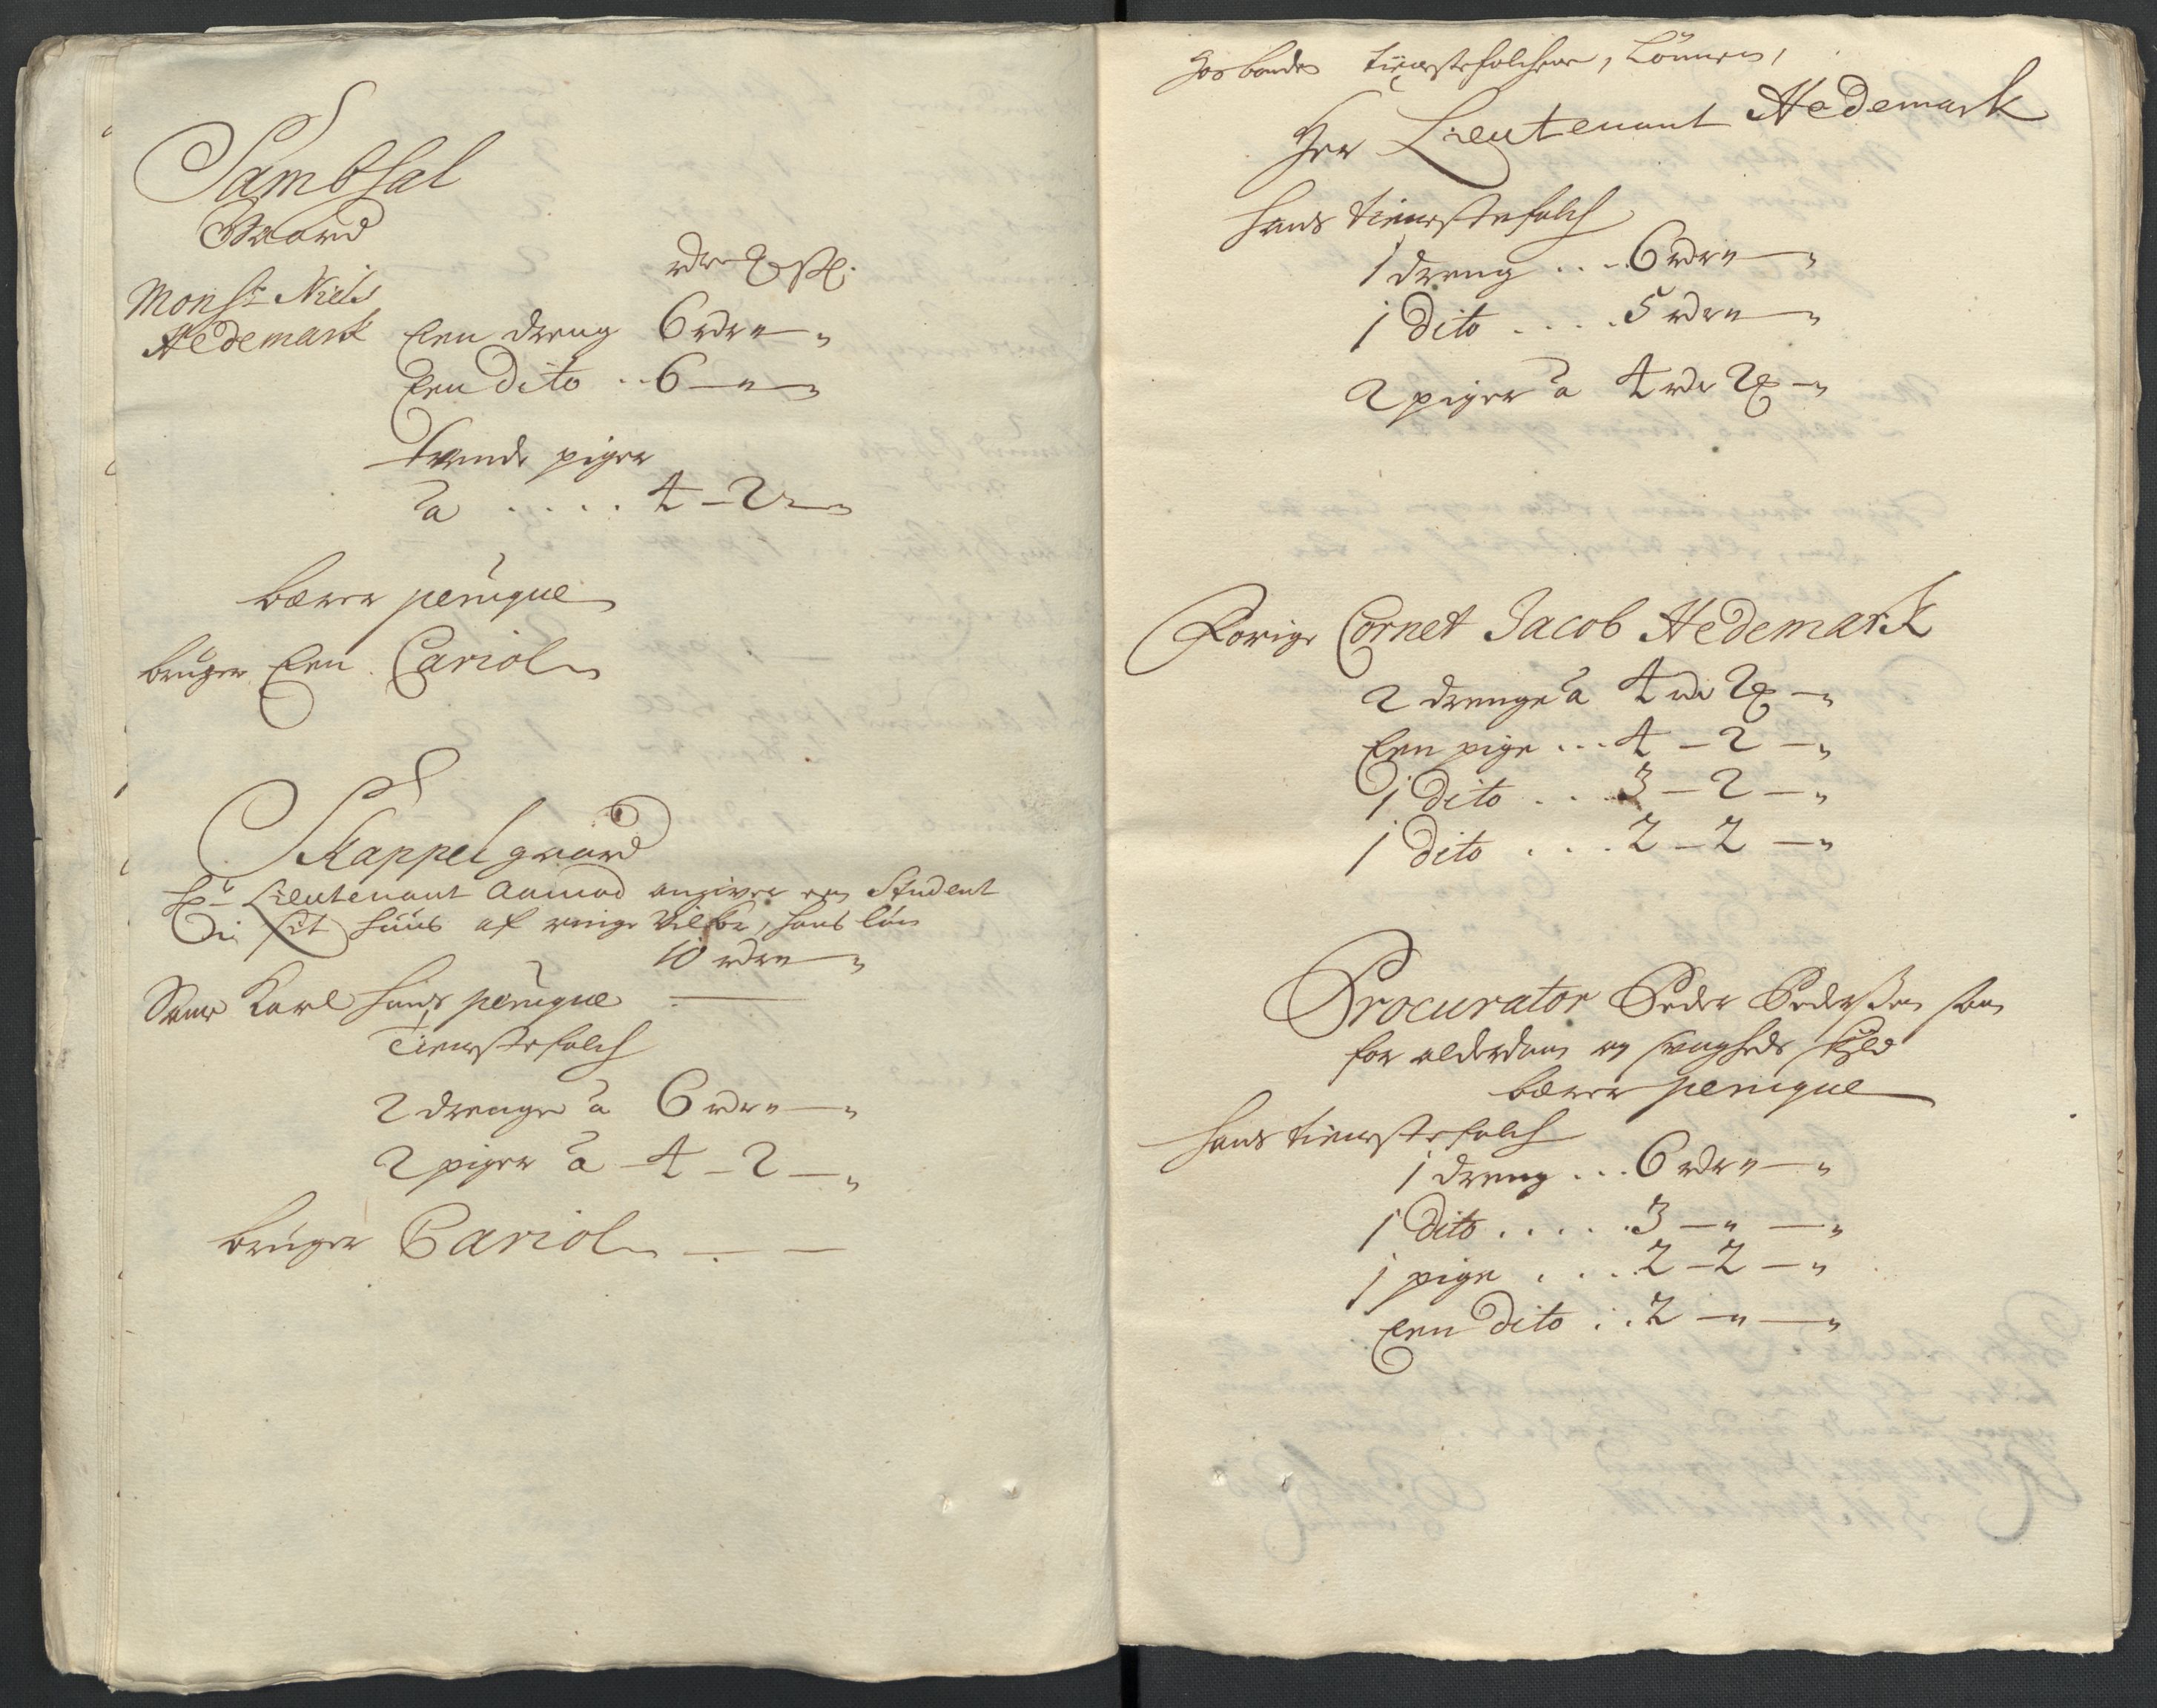 Sambsal
Gaard
rdr ℳ ß
Monsr Niels
Hedemark Een dreng 6 rdr " — "
Een Dito .. 6 — " — "
Tvende piger
a ..... 4 — 2 — "
bærer peruque
bruger Een Cariol
Skappelgaard
Hr Lieutenant Aamod angiver en Student
i sit huus af ringe Vilkor, hans løn
10 rdr " — "
Karl hans peruque
Tienestefolch
2 drenge a 6 rdr " — "
2 piger a 4 — 2 — "
bruger Cariol
Hosbonder tienestefolchene, Lønnen,
Hr Lieutenant Hedemark
hans tienestefolch
1 dreng ... 6 rdr " — "
1 Dito .... 5 rdr " — "
2 piger a 4 rdr 2 ℳ — "
Forige Cornet Jacob Hedemark
2 drenge a 4 rdr 2 ℳ — "
Een pige ... 4 — 2 — "
1 Dito ... 3 — 2 — "
1 Dito ... 2 — 2 — "
Procurator Peder Pedersen som
for alderdom og svagheds skyld
bærer peruque
hans tienestefolch
1 dreng ... 6 rdr " — "
1 Dito ..... 3 — " — "
1 pige ... 2 — 2 — "
Een Dito .. 2 — " — "